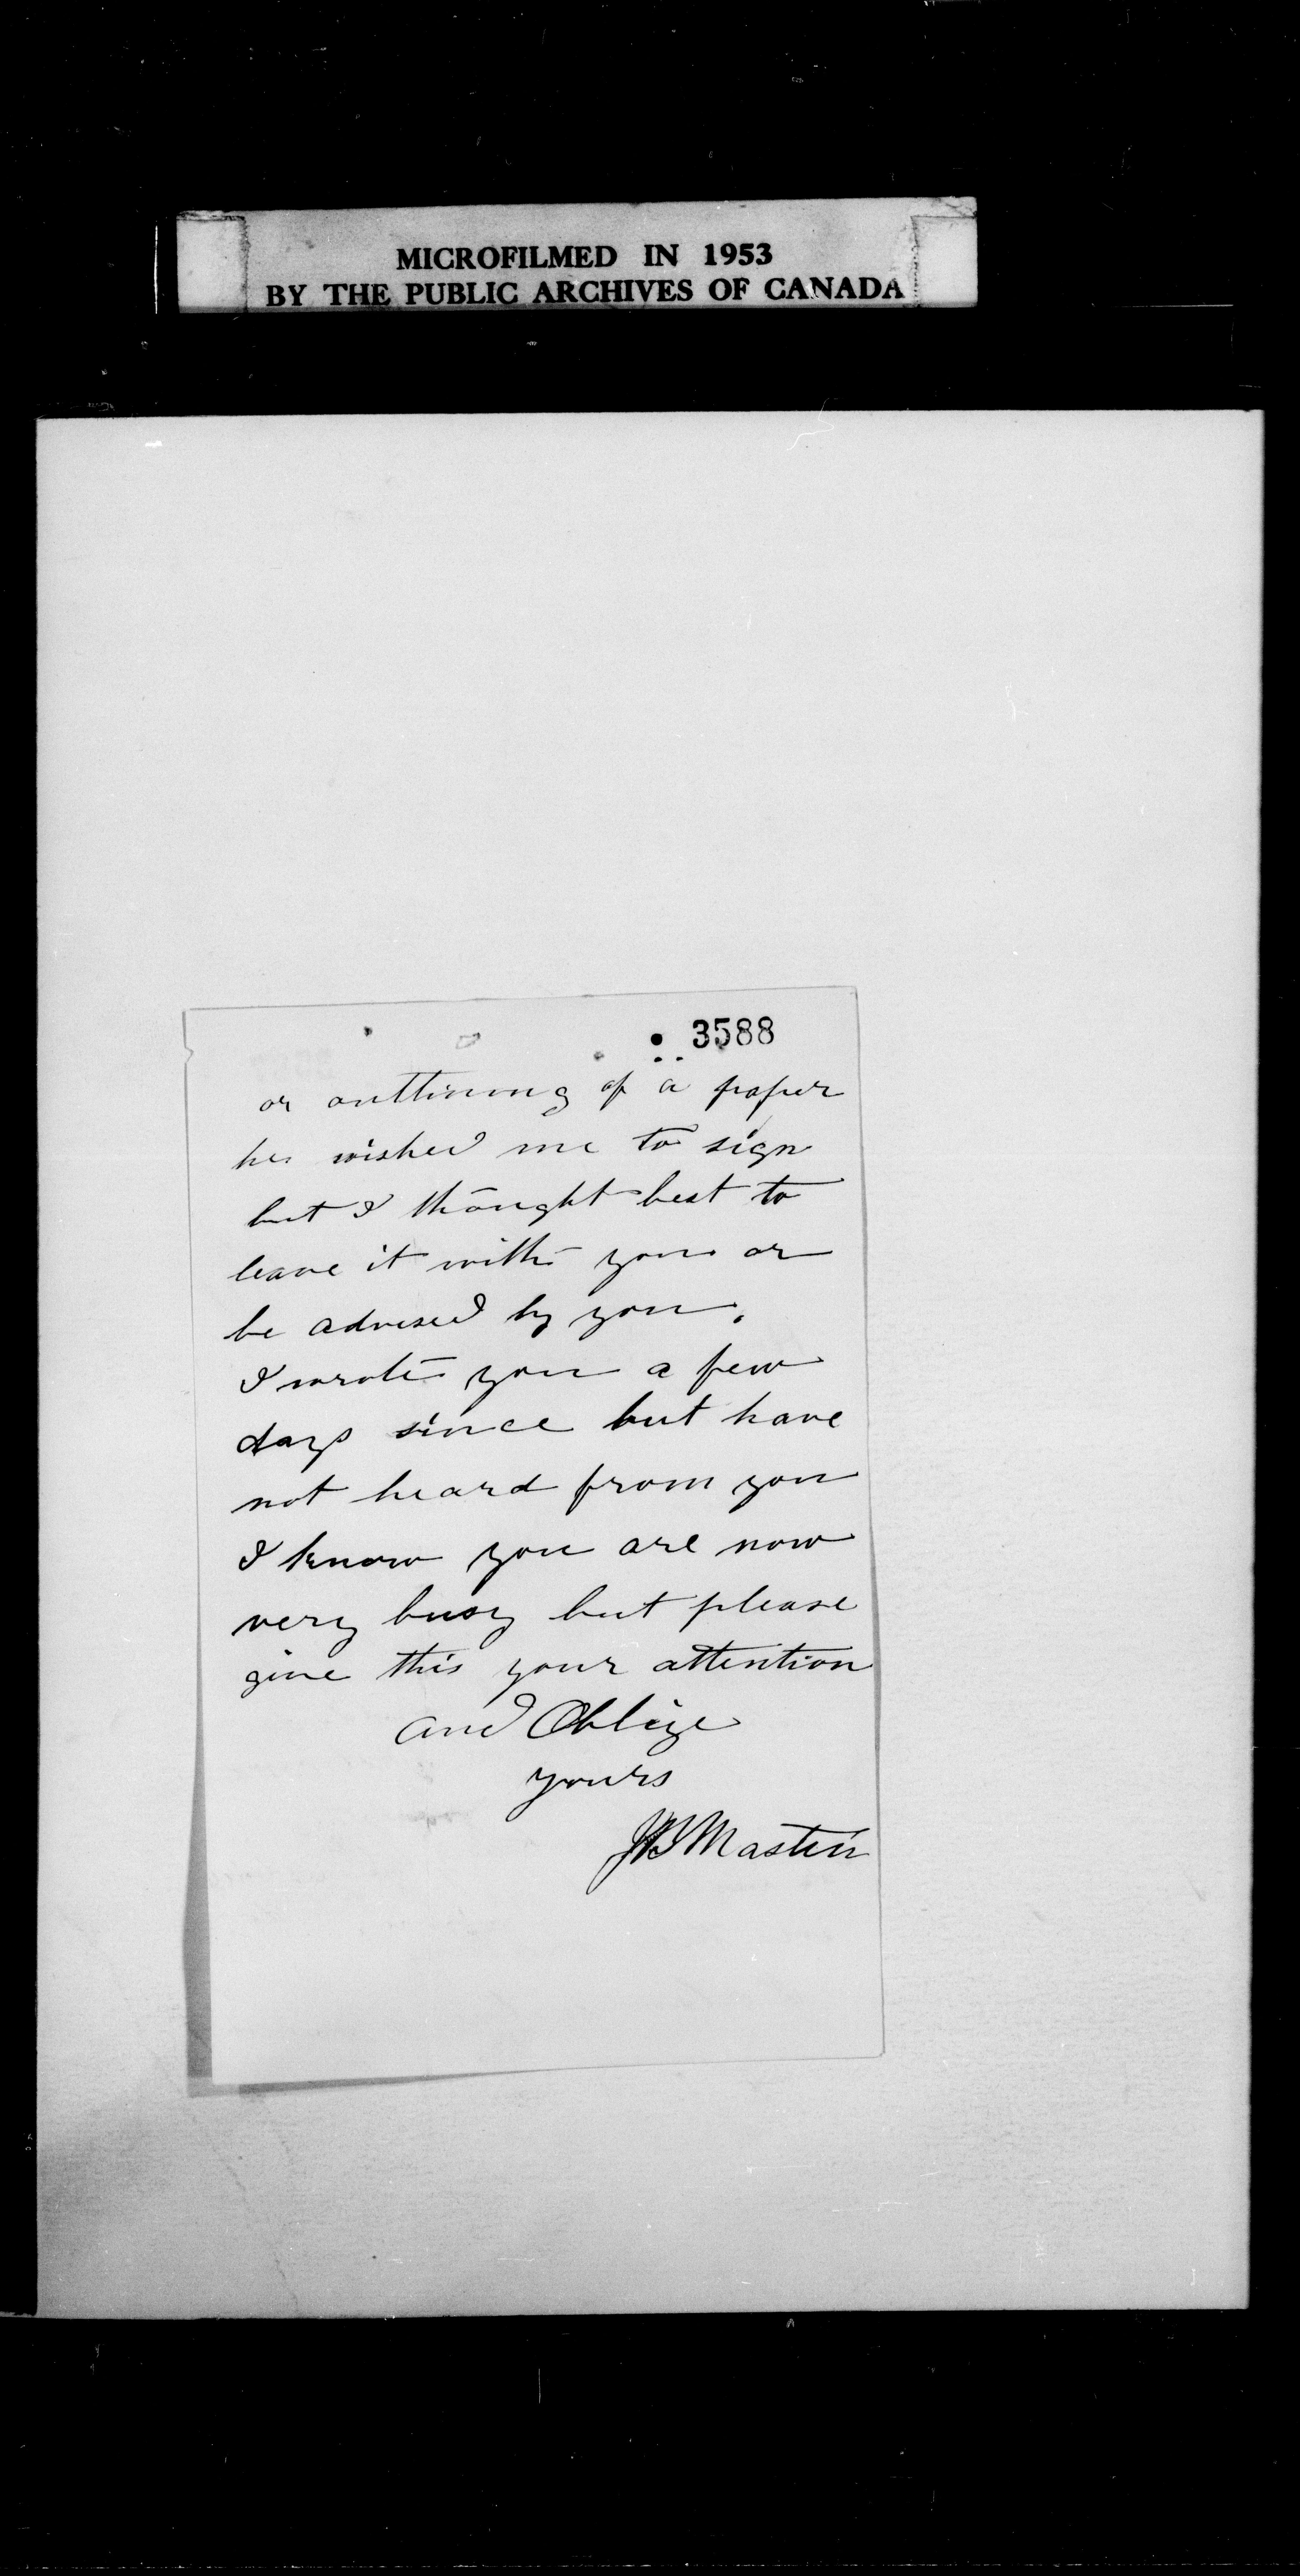 MICROFILMED IN 1953
BY THE PUBLIC ARCHIVES OF CANADA
3588
or outlining of a paper
he wished me to sign
but I thought best to
leave it with you or
be advised by you.
I wrote you a few
days since but have
not heard from you
I know you are now
very busy but please
give this your attention
and Oblige
yours
Mastin